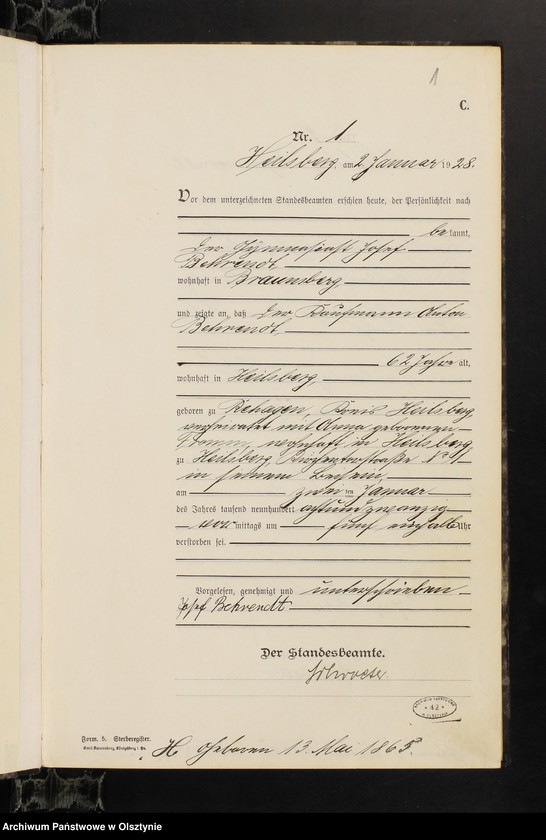 1
C.
Nr. 1
Heilsberg am 2 Januar 1928.
Vor dem unterzeichneten Standesbeamten erschien heute, der Persönlichkeit nach
be kannt,
der Gymnasiast Josef
Behrendt
wohnhaft in Braunsberg
und zeigte an, daß der Kaufmann Anton
Behrendt
62 Jahre alt,
wohnhaft in Heilsberg
geboren zu Rehagen, Kreis Heilsberg
verheiratet mit Anna geborenen
wohnhaft in Heilsberg
zu Heilsberg,
in seinem Beisein,
am zwei ten Januar
des Jahres tausend neunhundert achtundzwanzig
vor mittags um fünf einhalb Uhr
verstorben sei.
Vorgelesen, genehmigt und unterschrieben
Josef Behrendt
Der Standesbeamte.
Schroeter
* 42 *
Form. 5. Sterberegister.
H. Geboren 13. Mai 1865.
Archiwum Państwowe w Olsztynie